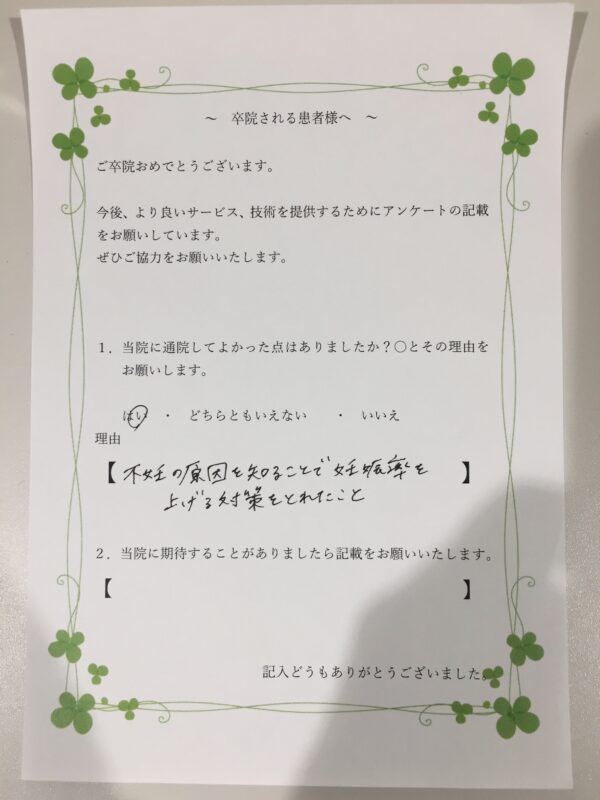 ～ 卒院される患者様へ ～
ご卒院おめでとうございます。
今後、より良いサービス、技術を提供するためにアンケートの記載
をお願いしています。
ぜひご協力をお願いいたします。
１．当院に通院してよかった点はありましたか？〇とその理由を
お願いします。
はい ・ どちらともいえない ・ いいえ
理由
【不妊の原因を知ることで妊娠率を】
上げる対策をとれたこと
２．当院に期待することがありましたら記載をお願いいたします。
【 】
記入どうもありがとうございました。